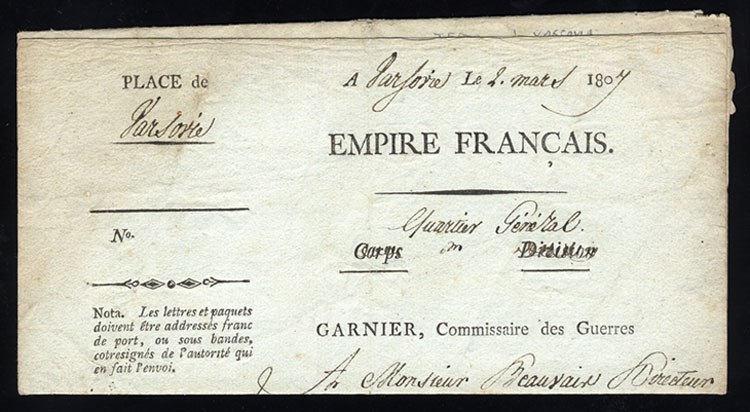 PLACE de
Varsovie
No.
Nota. Les lettres et paquets
doivent être addressés franc
de port, ou sous bandes,
cotresignés de l'autorité qui
en fait l'envoi.
A Varsovie Le 2. mars 1807
EMPIRE FRANÇAIS.
Quartier Général.
Corps Division
GARNIER, Commissaire des Guerres
A Monsieur Beauvair Directeur